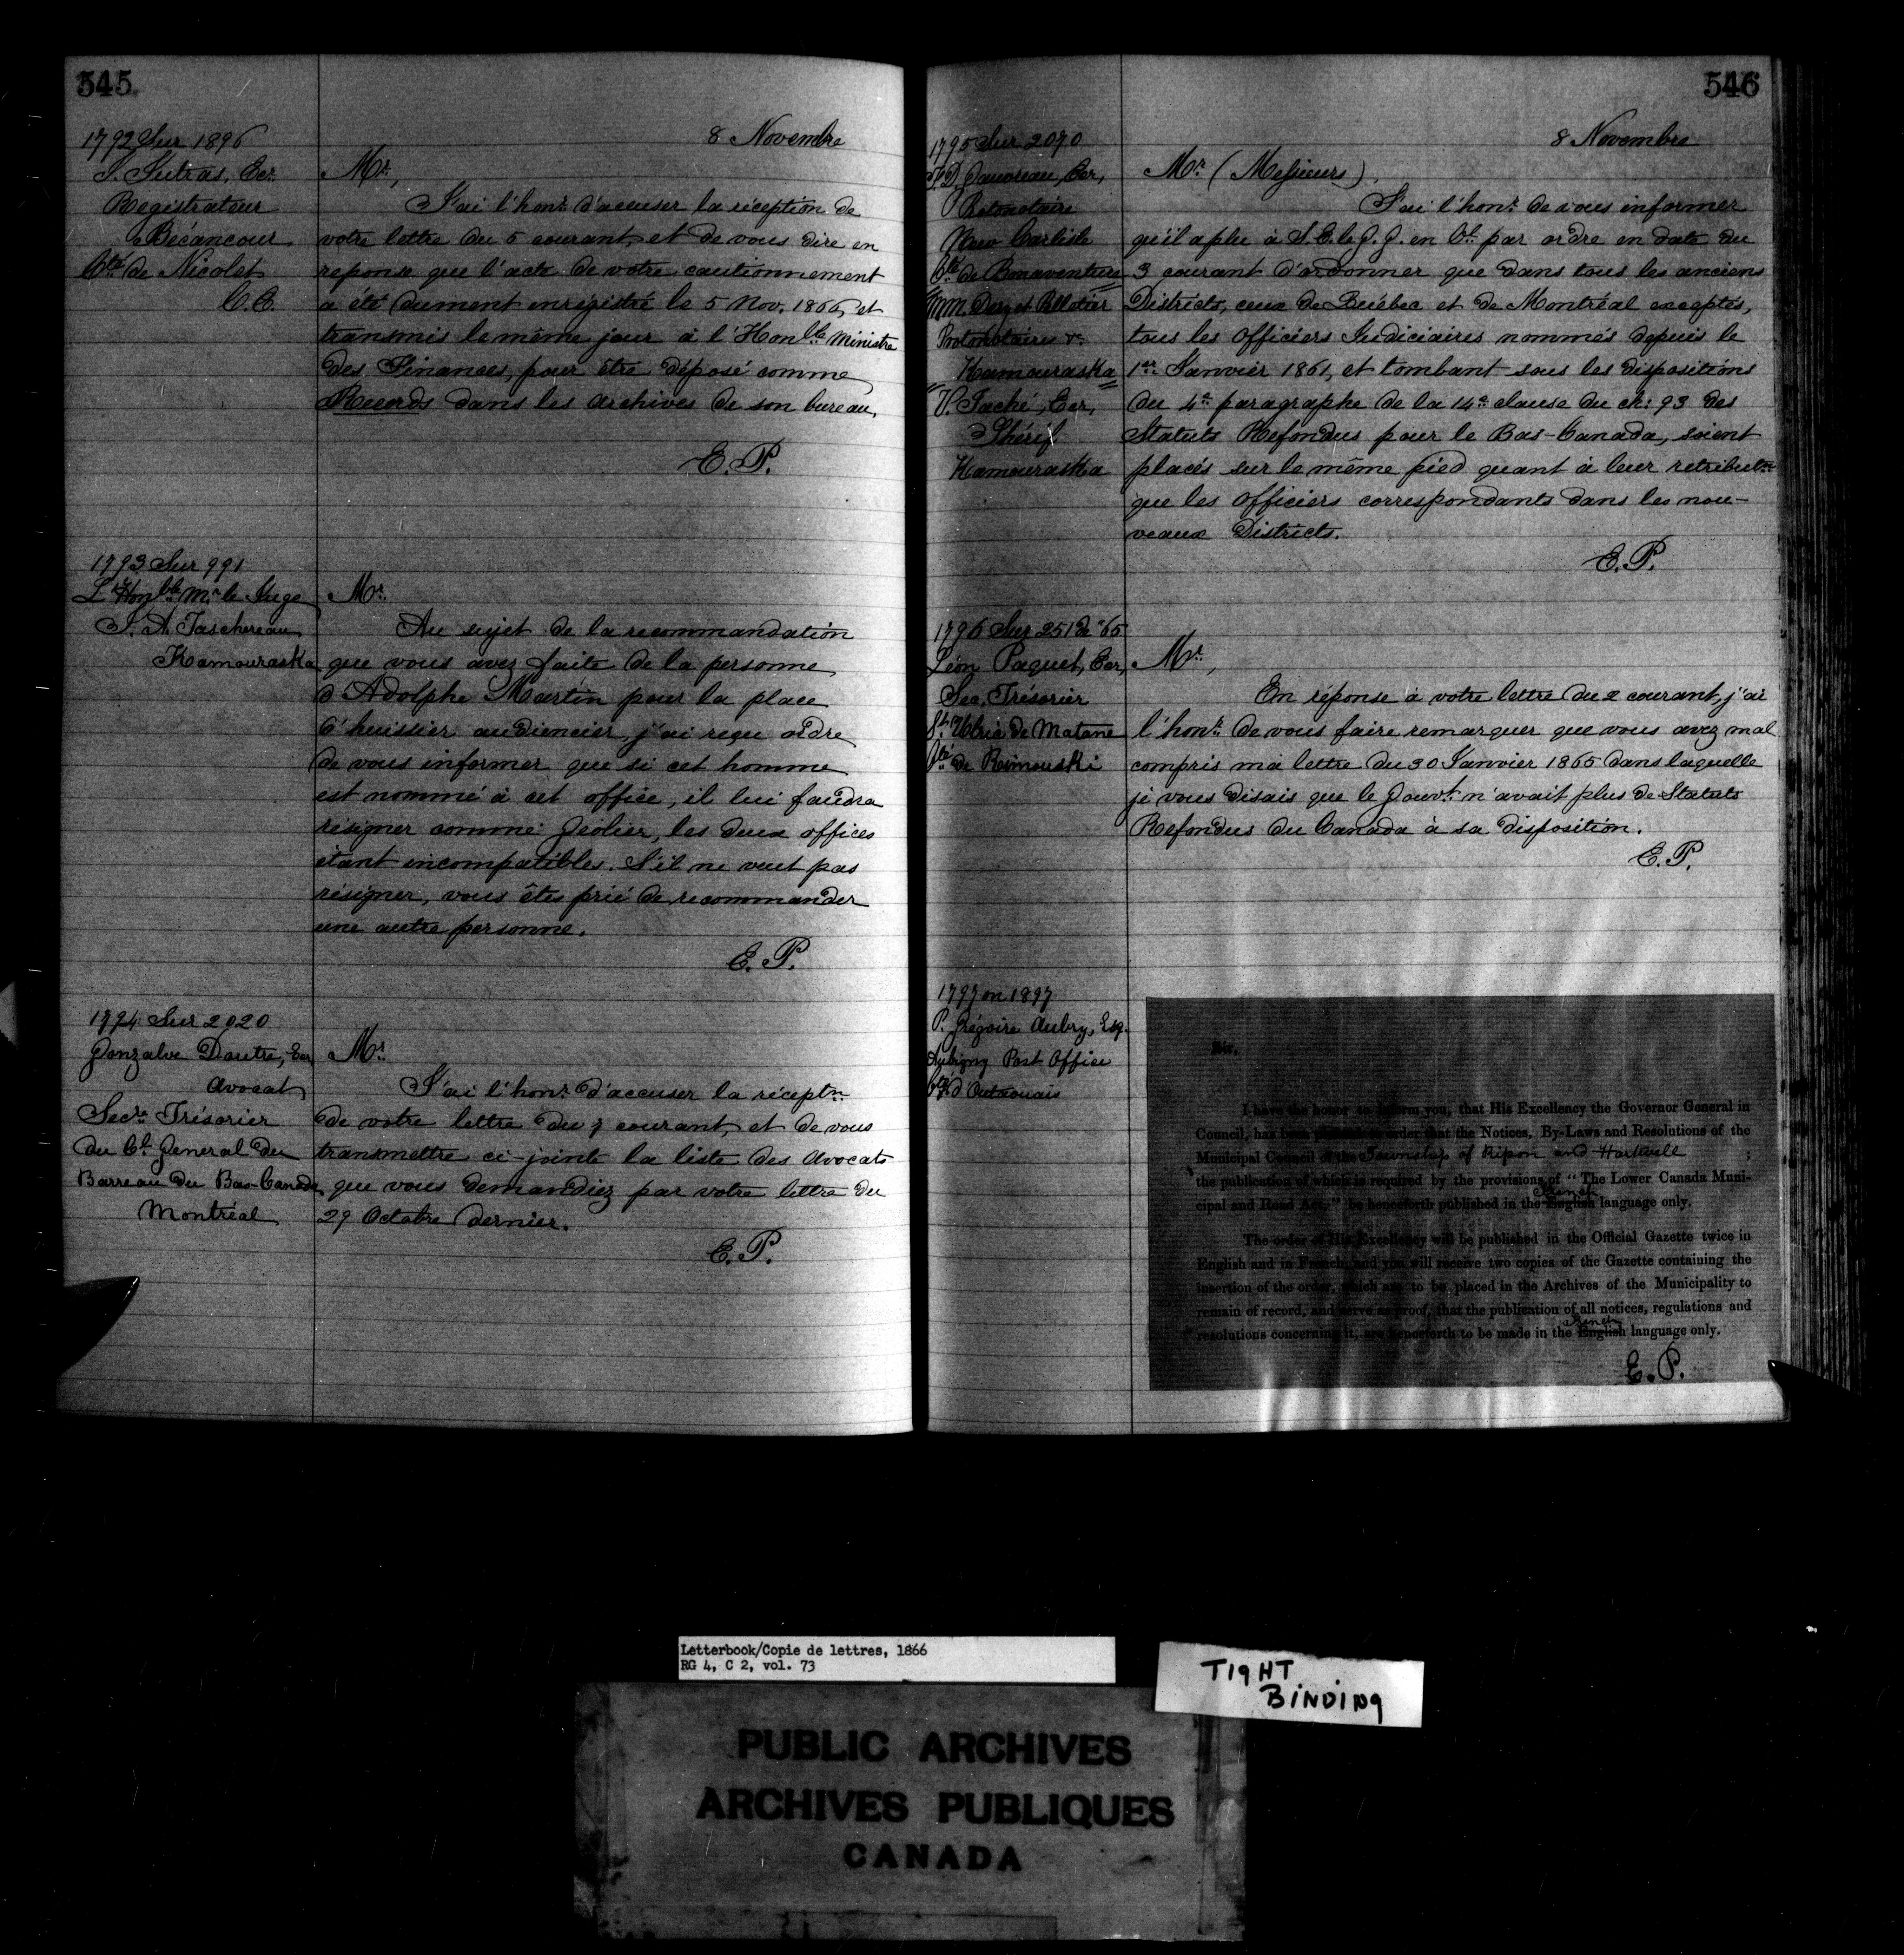 545
8 Novembre
1792 Sur 1896
J. Sutras, Ecr.
Registrateur
Bécancour
Cté de Nicolet
C.E.
Mr.,
J'ai l'honr. d'accuser la réception de
votre lettre du 5 courant, et de vous dire en
reponse que l'acte de votre cautionnement
a été dument enregistré le 5 Nov. 1866, et
transmis le même jour à l'Honble Ministre
des Finances, pour être déposé comme
Records dans les archives de son bureau.
E.P.
1793 Sur 991
L'Honble Mr. le Juge
J. A. Taschereau
Kamouraska
Mr.
Au sujet de la recommandation
que vous avez faite de la personne
d'Adolphe Martin pour la place
d'huissier audiencier, j'ai reçu ordre
de vous informer que si cet homme
est nommé à cet office, il lui faudra
résigner comme Geolier, les deux offices
étant incompatibles. S'il ne veut pas
résigner, vous êtes prié de recommander
une autre personne.
E.P.
1794 Sur 2020
Gonzalve Doutre, Ecr
Avocat
Secre. Trésorier
du Cl. General du
Barreau du Bas-Canada
Montréal
Mr.
J'ai l'honr. d'accuser la réceptn.
de votre lettre du 7 courant, et de vous
transmettre ci-jointe la liste des Avocats
que vous demandiez par votre lettre du
29 Octobre dernier.
E.P.
546
8 Novembre
1795 Sur 2070
F. D. Gauvreau, Ecr,
Protonotaire
New Carlisle
Cté de Bonaventure
MM. Dery et Pelletier
Protonotaires
Kamouraska
V. Taché, Ecr,
Shérif
Kamouraska
Mr. (Messieurs),
J'ai l'honr. de vous informer
qu'il a plu à S.E. le G.G. en Cl. par ordre en date du
3 courant d'ordonner que dans tous les anciens
Districts, ceux de Québec et de Montréal exceptés,
tous les Officiers Judiciaires nommés depuis le
1er. Janvier 1861, et tombant sous les dispositions
du 4e. paragraphe de la 14e. clause du ch: 93 des
Statuts Refondus pour le Bas-Canada, soient
placés sur le même pied quant à leur retributn.
que les officiers correspondants dans les nou-
veaux Districts.
E.P.
1796 Sur 2512 de '65
Léon Paquet, Ecr,
Sec. Trésorier
St. Ulric de Matane
Cté de Rimouski
Mr.,
En réponse à votre lettre du 2 courant, j'ai
l'honr. de vous faire remarquer que vous avez mal
compris ma lettre du 30 Janvier 1865 dans laquelle
je vous disais que le Gouvt. n'avait plus de Statuts
Refondus du Canada à sa disposition.
E.P.
1797 on 1897
P. Grégoire Aubry, Esq.
Aubigny Post Office
Cté d'Outaouais
Sir,
I have the honor to inform you, that His Excellency the Governor General in
Council, has been pleased to order that the Notices, By-Laws and Resolutions of the
Municipal Council of the Township of Ripon and Hartwell ;
the publication of which is required by the provisions of "The Lower Canada Muni-
cipal and Road Act," be henceforth published in the English French language only.
The order of His Excellency will be published in the Official Gazette twice in
English and in French, and you will receive two copies of the Gazette containing the
insertion of the order, which are to be placed in the Archives of the Municipality to
remain of record, and serve as proof, that the publication of all notices, regulations and
resolutions concerning it, are henceforth to be made in the English French language only.
E.P.
Letterbook/Copie de lettres, 1866
RG 4, C 2, vol. 73
TIGHT
BINDING
PUBLIC ARCHIVES
ARCHIVES PUBLIQUES
CANADA